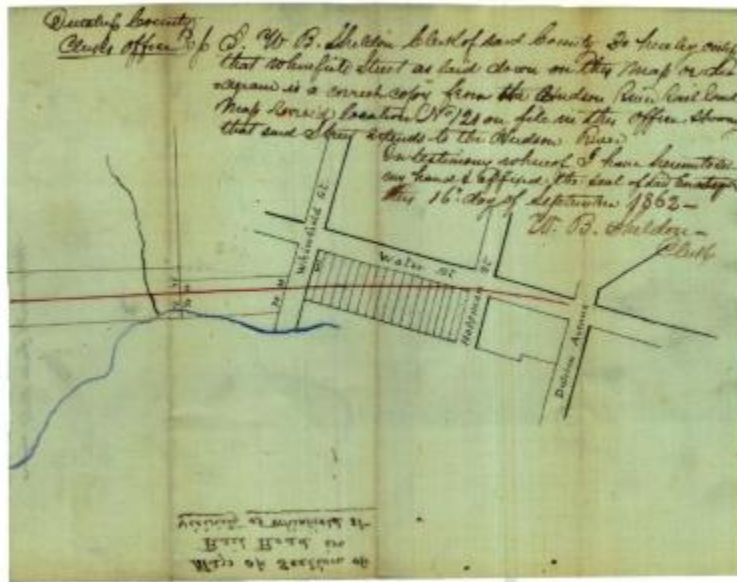 Dutchess County
Clerks office S.S. I, W. B. Sheldon Clerk of said County Do hereby certify
that Whinfield Street as laid down on this Map or
is a correct copy from the Hudson River Rail Road
Map location No 121 on file in this office Showing
that said Street extends to the Hudson River
In testimony whereof I have hereunto set
my hand & affixed the Seal of said
this 16 day of September 1862 -
W. B. Sheldon -
Clerk
Whinfield St.
Water St
Hoffman St
Dutchess Avenue
Map of Section of
Rail Road in
vicinity of Whinfield St